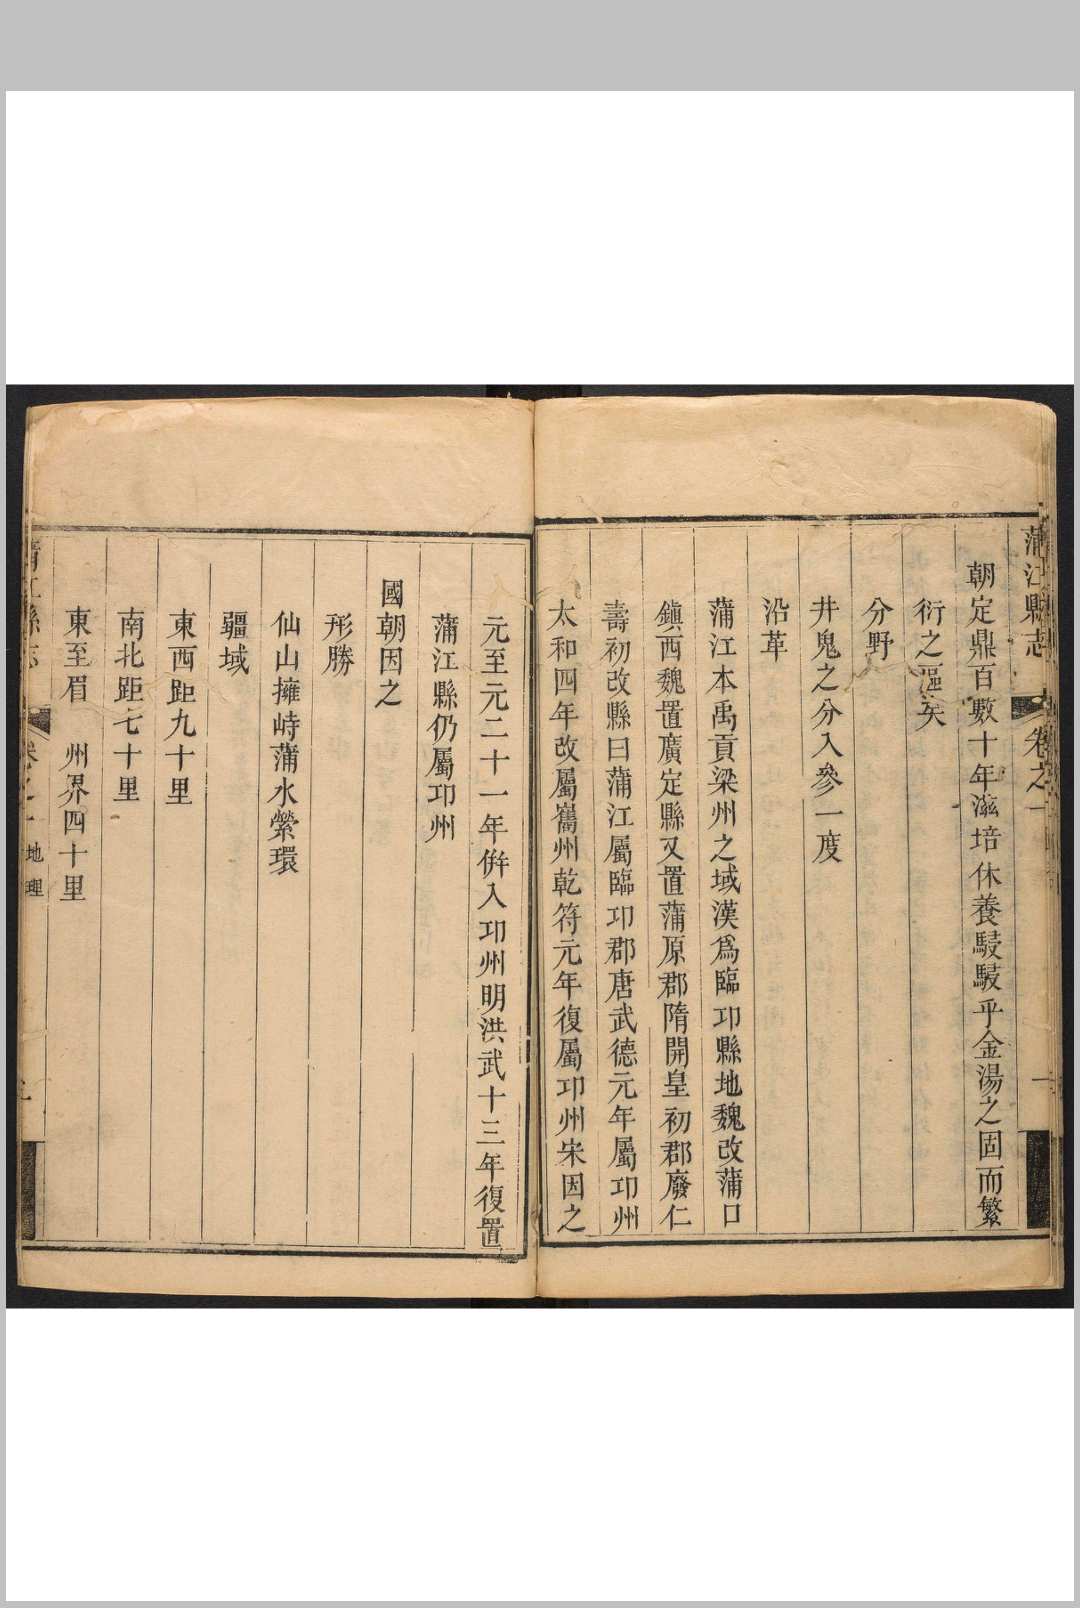 蒲江縣志
卷之一
一
朝定鼎百數十年滋培休養駸駸乎金湯之固而繁
衍之區矣
分野
井鬼之分入參一度
沿革
蒲江本禹貢梁州之域漢爲臨卭縣地魏改蒲口
鎮西魏置廣定縣又置蒲原郡隋開皇初郡廢仁
壽初改縣曰蒲江屬臨卭郡唐武德元年屬卭州
太和四年改屬巂州乾符元年復屬卭州宋因之
元至元二十一年併入卭州明洪武十三年復置
蒲江縣仍屬卭州
國朝因之
形勝
仙山擁峙蒲水縈環
疆域
東西距九十里
南北距七十里
東至眉 州界四十里
蒲江縣志
卷之一 地理